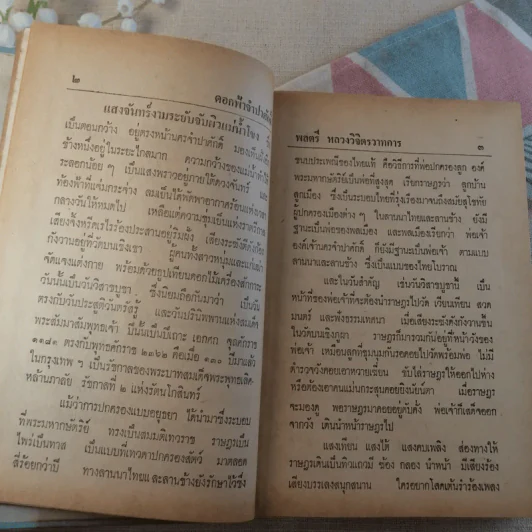 ๒
ดอกฟ้าจำปาศักดิ์
แสงจันทร์งามระยับจับผิวแม่น้ำโขง
เป็นตอนกว้าง อยู่ตรงหน้านครจำปาศักดิ์ มองเห็นฝั่ง
ข้างหนึ่งอยู่ในระยะไกลมาก ความกว้างของแม่น้ำทำให้
ละลอกน้อย ๆ เป็นแสงพราวอยู่ภายใต้ดวงจันทร์ และ
ท้องฟ้าที่แจ่มกระจ่าง ลมเย็นได้พัดพาอากาศร้อนแห่ง
กลางวันให้หมดไป เหลือแต่ความชุ่มเย็นแห่งราตรี
เสียงจิ้งหรีดเรไรร้องประสานอยู่ริมฝั่ง เสียงระฆัง
กังวานอยู่ที่วัดบนเชิงเขา ผู้คนทั้งสาวหนุ่มและแก่เฒ่า
จัดแจงแต่งกาย พร้อมด้วยธูปเทียนดอกไม้เครื่องสักการะ
วันนั้นเป็นวันวิสาขบูชา ซึ่งนิยมถือกันมาว่า เป็นวัน
ตรงกับวันประสูติวันตรัสรู้ และวันปรินิพพานแห่งสมเด็จ
พระสัมมาสัมพุทธเจ้า ปีนั้นเป็นปีเถาะ เอกศก จุลศักราช
๑๑๘๑ ตรงกับพุทธศักราช ๒๓๖๒ คือเมื่อ ๑๓๐ ปีมาแล้ว
ในกรุงเทพ ฯ เป็นรัชกาลของพระบาทสมเด็จพระพุทธเลิศ-
หล้านภาลัย รัชกาลที่ ๒ แห่งรัตนโกสินทร์
แม้ว่าการปกครองแบบอยุธยา ได้นำมาซึ่งระบอบ
ที่พระมหากษัตริย์ ทรงเป็นสมมติเทวราช ราษฎรเป็น
ไพร่เป็นทาส เป็นแบบที่เทวดาปกครองสัตว์ มาตลอด
สี่ร้อยกว่าปี ทางลานนาไทยและลานช้างยังรักษาไว้ซึ่ง
พลตรี หลวงวิจิตรวาทการ
๓
ขนบประเพณีของไทยแท้ คือวิธีการที่พ่อปกครองลูก องค์
พระมหากษัตริย์เป็นพ่อที่สูงสุด เรียกราษฎรว่า ลูกบ้าน
ลูกเมือง ซึ่งเป็นระบอบไทยที่รุ่งเรืองมาจนถึงสมัยสุโขทัย
ผู้ปกครองเมืองต่าง ๆ ในลานนาไทยและลานช้าง ยังมี
ฐานะเป็นพ่อของพลเมือง และพลเมืองเรียกว่า พ่อเจ้า
องค์เจ้านครจำปาศักดิ์ ก็ยังมีฐานะเป็นพ่อเจ้า ตามแบบ
ลานนาและลานช้าง ซึ่งเป็นแบบของไทยโบราณ
และในวันสำคัญ เช่นวันวิสาขบูชานี้ เป็น
หน้าที่ของพ่อเจ้าที่จะต้องนำราษฎรไปวัด เวียนเทียน สวด
มนตร์ และฟังธรรมเทศนา เมื่อเสียงระฆังดังกังวานขึ้น
ในวัดบนเชิงภูผา ราษฎรก็มารวมกันอยู่ที่หน้าวังของ
พ่อเจ้า เหมือนลูกที่ชุมนุมกันรอคอยไปวัดพร้อมพ่อ ไม่มี
ตำรวจวังคอยเอาหวายเฆี่ยน ขับไล่ราษฎรให้ออกไปห่าง
หรือต้องเอาคนแม่นกระสุนคอยยิงนัยน์ตา เมื่อราษฎร
จะมองดู พอราษฎรมาคอยอยู่คับคั่ง พ่อเจ้าก็เสด็จออก
จากวัง เดินนำหน้าราษฎรไป
แสงเทียน แสงไต้ แสงคบเพลิง ส่องทางให้
ราษฎรเดินเป็นทิวแถวมี ฆ้อง กลอง นำหน้า มีเสียงร้อง
เสียงบรรเลงสนุกสนาน ใครอยากโลดเต้นรำร้องเพลง